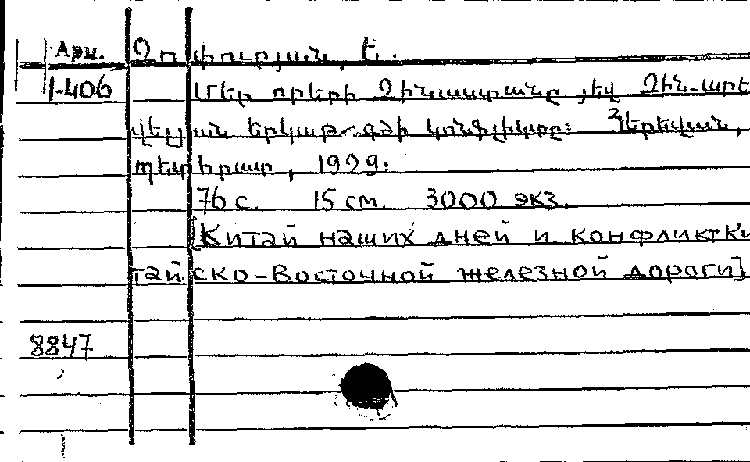 Арм. Չոփուրյան, Ե.
1-406 Մեր որերի Չինաստանը յեվ Չին-արե
վելյան երկաթ. գծի կոնֆլիկտը: Յերեվան,
պետհրատ, 1929.
76 с. 15 см. 3000 экз.
[Китай наших дней и конфликт ки
тайско-Восточной железной дороги]
8847